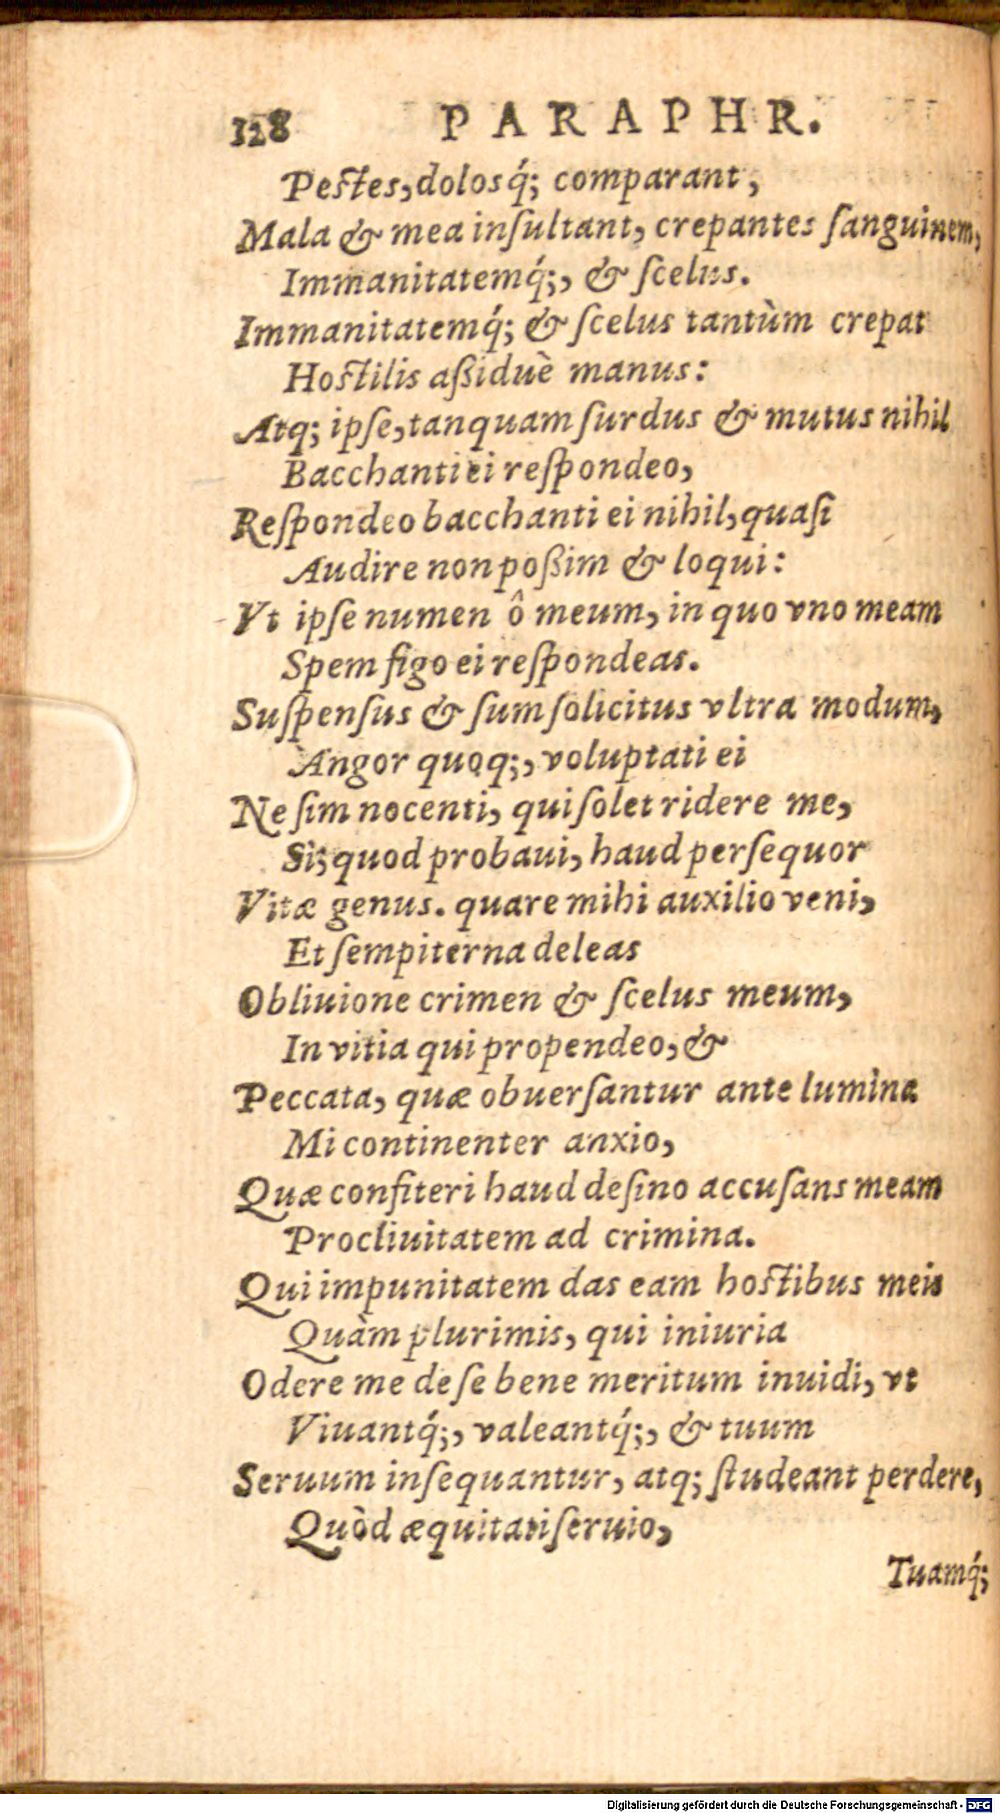 128 PARAPHR.
Pestes, dolosq́; comparant,
Mala & mea inſultant, crepantes ſanguinem,
Immanitatemq́;, & ſcelus.
Immanitatemq́; & ſcelus tantùm crepat
Hostilis aßiduè manus:
Atq; ipſe, tanquam ſurdus & mutus nihil
Bacchanti ei reſpondeo,
Reſpondeo bacchanti ei nihil, quaſi
Audire non poßim & loqui:
Vt ipſe numen ô meum, in quo vno meam
Spem figo ei reſpondeas.
Suſpenſus & ſum ſolicitus vltra modum,
Angor quoq;, voluptati ei
Ne ſim nocenti, qui ſolet ridere me,
Si, quod probaui, haud perſequor
Vitæ genus. quare mihi auxilio veni,
Et ſempiterna deleas
Obliuione crimen & ſcelus meum,
In vitia qui propendeo, &
Peccata, quæ obuerſantur ante lumina
Mi continenter anxio,
Quæ confiteri haud deſino accuſans meam
Procliuitatem ad crimina.
Qui impunitatem das eam hostibus meis
Quàm plurimis, qui iniuria
Odere me de ſe bene meritum inuidi, vt
Viuantq́;, valeantq́;, & tuum
Seruum inſequantur, atq; ſtudeant perdere,
Quòd æquitati ſeruio,
Tuamq́;
Digitalisierung gefördert durch die Deutsche Forschungsgemeinschaft - DFG